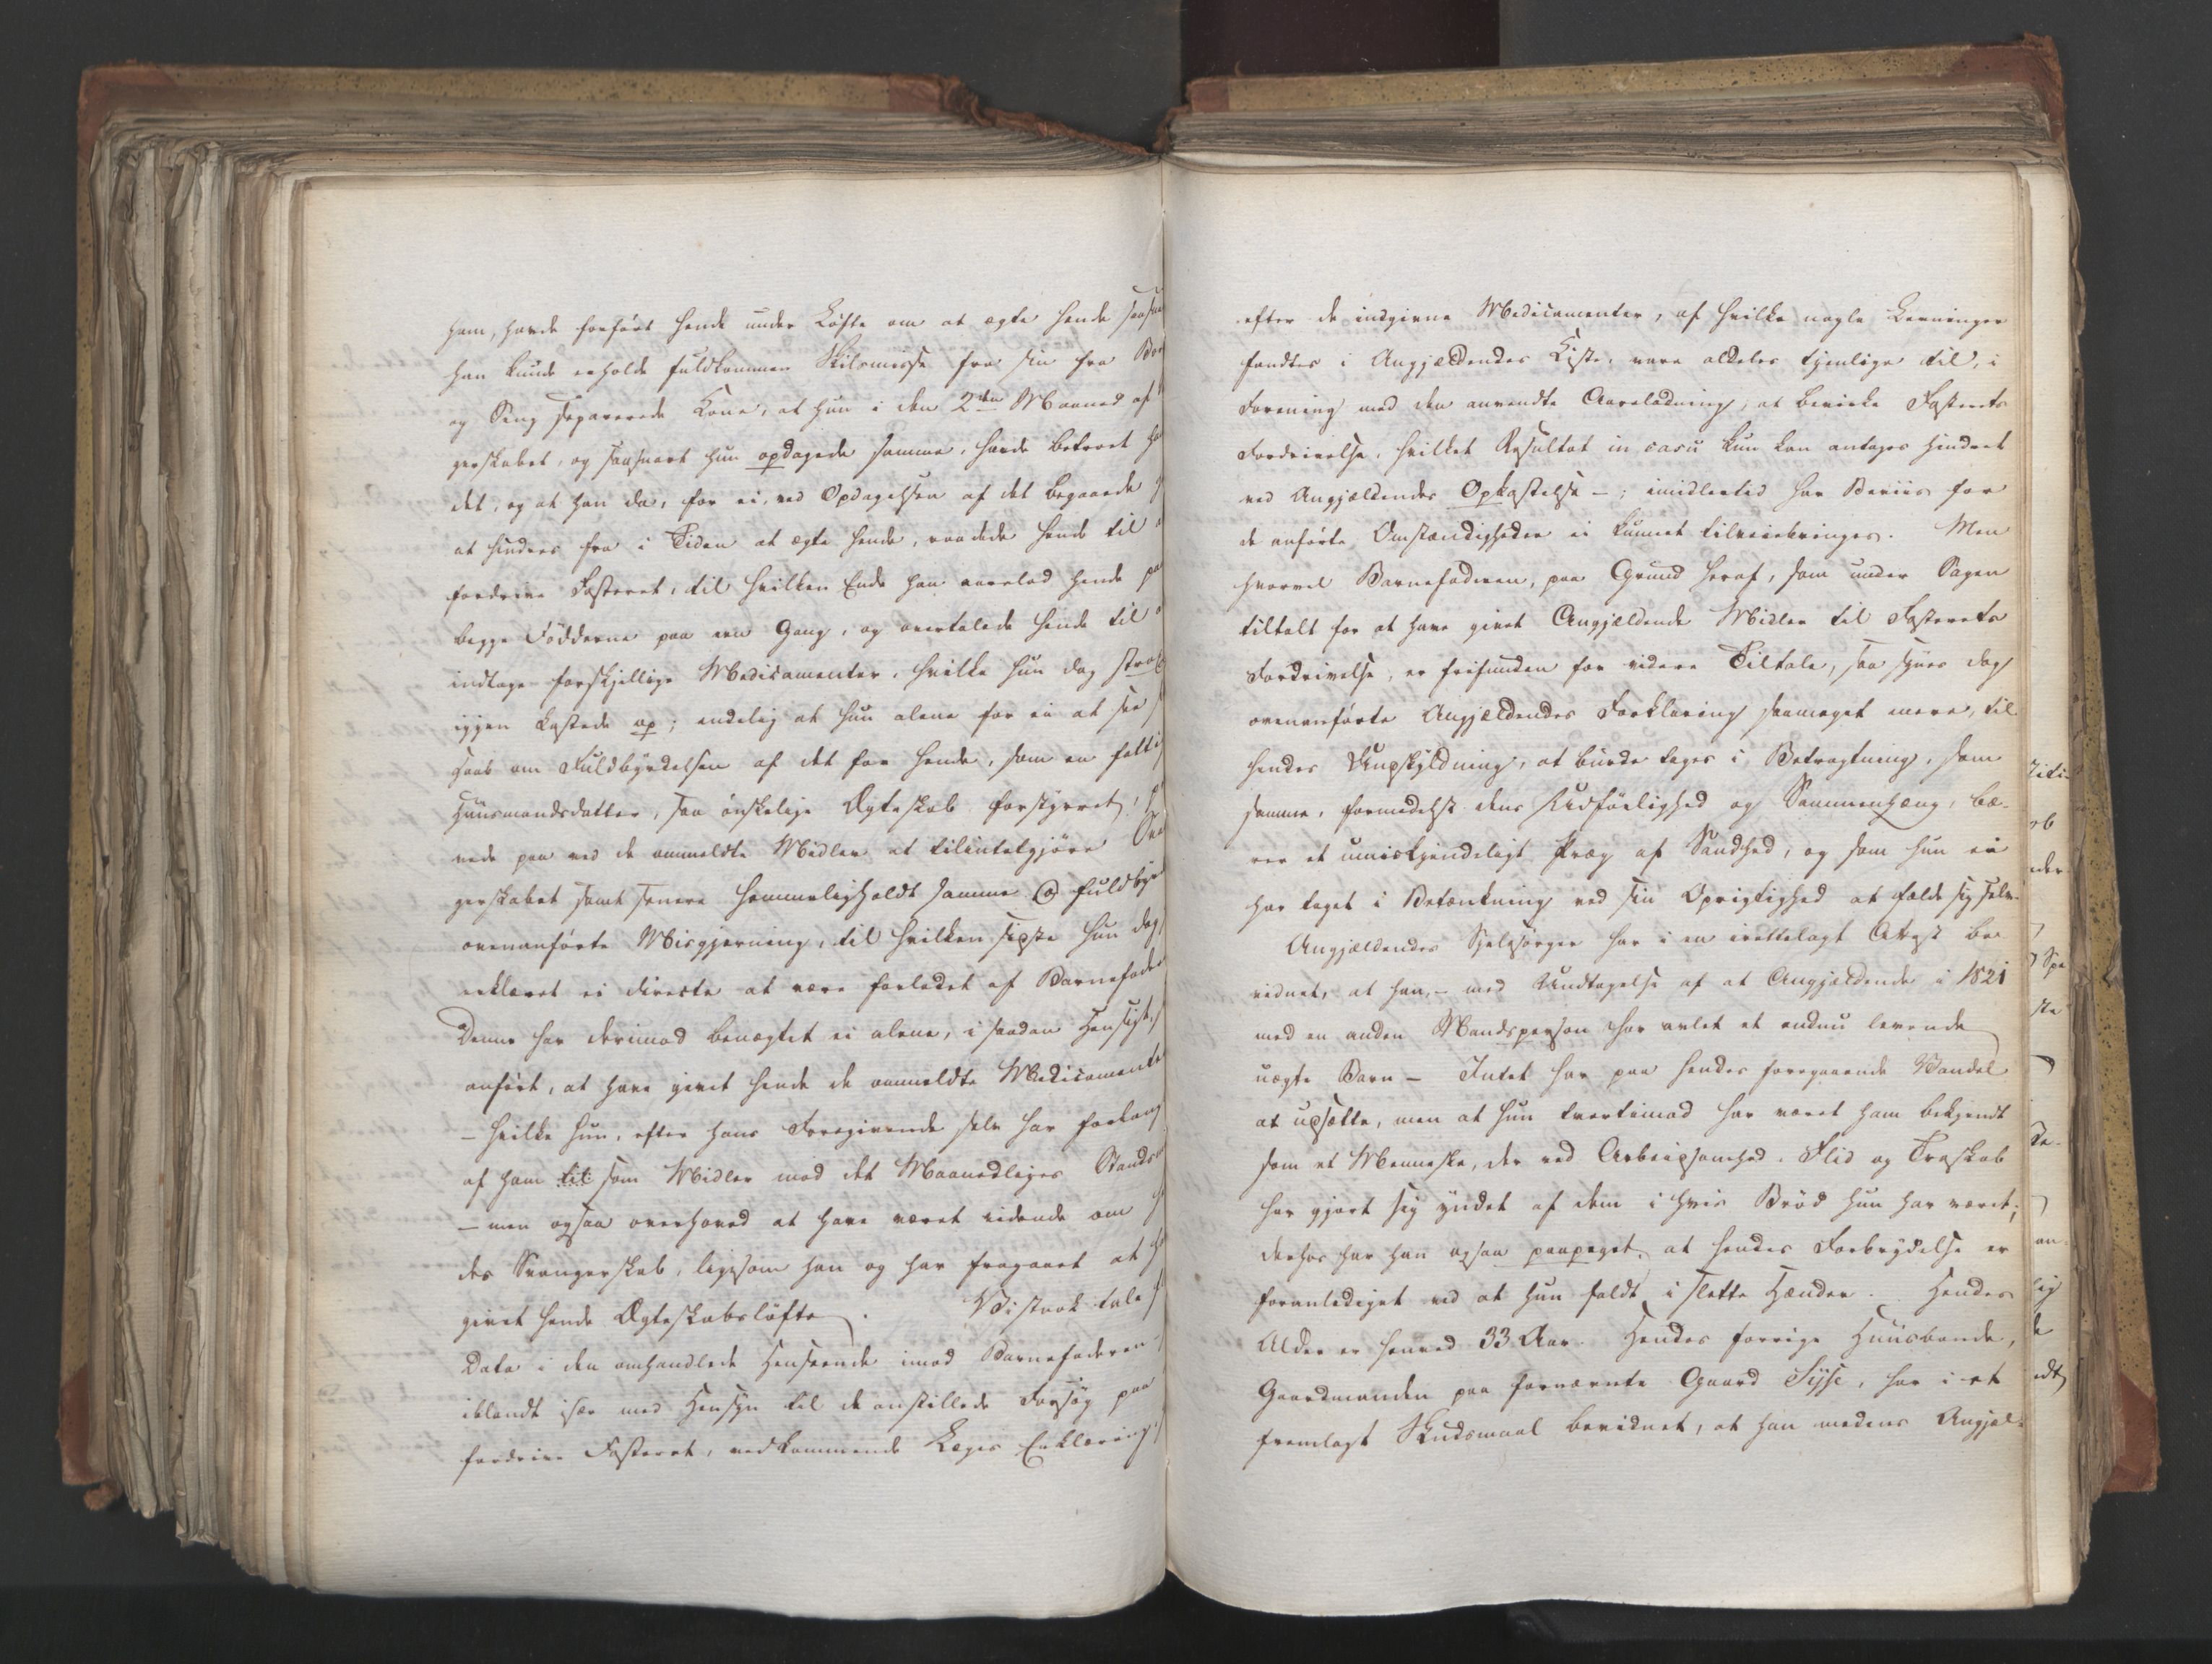 ham, havde forført hende under Løfte om at ægte hende saasna
han kunde erholde fuldkommen Skilsmisse fra sin fra Bor
og Seng separerede Kone, at hun i den 2den Maaned af
gerskabet, og saasnart hun opdagede samme, havde betroet ha
det, og at han da, for ei, ved Opdagelsen af det begaaede
at hindres fra i Tiden at ægte hende, raadede hende til a
fordrive Fosteret, til hvilken Ende han aarelod hende paa
begge Födderne paa een Gang, og overtalede hende til a
indtage forskjellige Medicamenter, hvilke hun dog strax
igjen kastede op; endelig at hun alene for ei at see
Haab om Fuldbyrdelsen af det for hende, som en fattig
Huusmandsdatter, saa ønskelige Ægteskab forstyrret,
vede paa ved de ommeldte Midler at tilintetgjöre Svan
gerskabet samt senere hemmeligholdt samme og fuldbyr
ovenanførte Misgjerning, til hvilken sidste hun dog
erklæret ei directe at være forledet af Barnefade
Denne har derimod benægtet ei alene, i saadan Hensigt,
anført, at have givet hende de ommeldte Medicamente
– hvilke hun, efter hans Foregivende selv har forlang
af ham til som Midler mod det Maanedliges Stands
– men ogsaa overhoved at have været vidende om
des Svangerskab, ligesom han og har fragaaet at ha
givet hende Ægteskabsløfte. Vistnok tale
Data i den omhandlede Henseende imod Barnefaderen
iblandt især med Hensyn til de anstillede Forsøg paa
fordrive Fosteret, vedkommende Læges Erklæring,
efter de indgivne Medicamenter, af hvilke nogle Levninger
fandtes i Angjældendes Kiste, vare aldeles tjenlige til, i
Forening med den anvendte Aareladning, at bevirke Fosterets
Fordrivelse, hvilket Resultat in casu kun kan antages hindret
ved Angjældendes Opkastelse –; imidlertid har Beviis for
de anførte Omstændigheder ei kunnet tilveiebringes. Men
hvorvel Barnefaderen, paa Grund heraf, som under Sagen
tiltalt for at have givet Angjældende Midler til Fosterets
Fordrivelse, er frifunden for videre Tiltale, saa synes dog
ovenanførte Angjældendes Forklaring saameget mere, til
hendes Undskyldning, at burde tages i Betragtning, som
samme, formedelst dens Udførlighed og Sammenhæng, bæ-
rer et umiskjendeligt Præg af Sandhed, og som hun ei
har taget i Betænkning ved sin Oprigtighed at fælde sig selv.
Angjældendes Sjelesørger har i en irettelagt Attest be
vidnet, at han, – med Undtagelse af at Angjældende i 1821
med en anden Mandsperson har avlet et endnu levende
uægte Barn – Intet har paa hendes foregaaende Vandel
at udsætte, men at hun tvertimod har været ham bekjendt
som et Menneske, der ved Arbeidsomhed, Flid og Troskab
har gjort sig yndet af dem i hvis Brød hun har været;
derhos har han ogsaa paapeget, at hendes Forbrydelse er
foranlediget ved at hun faldt i slette Hænder. Hendes
Alder er henved 33 Aar. Hendes forrige Huusbonde,
Gaardmanden paa fornævnte Gaard Sysse, har i et
fremlagt Skudsmaal bevidnet, at han medens Angjæl-